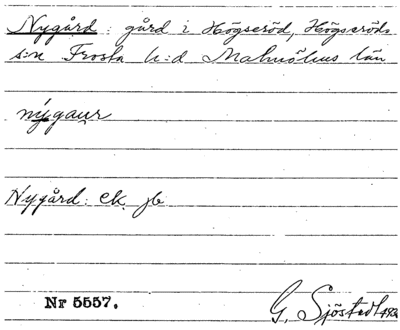 Nygård: gård i Högseröd, Högseröds
s:n Frosta h:d Malmöhus län
nýgaur
Nygård: ek. jb
Nr 5557.
G. Sjöstedt